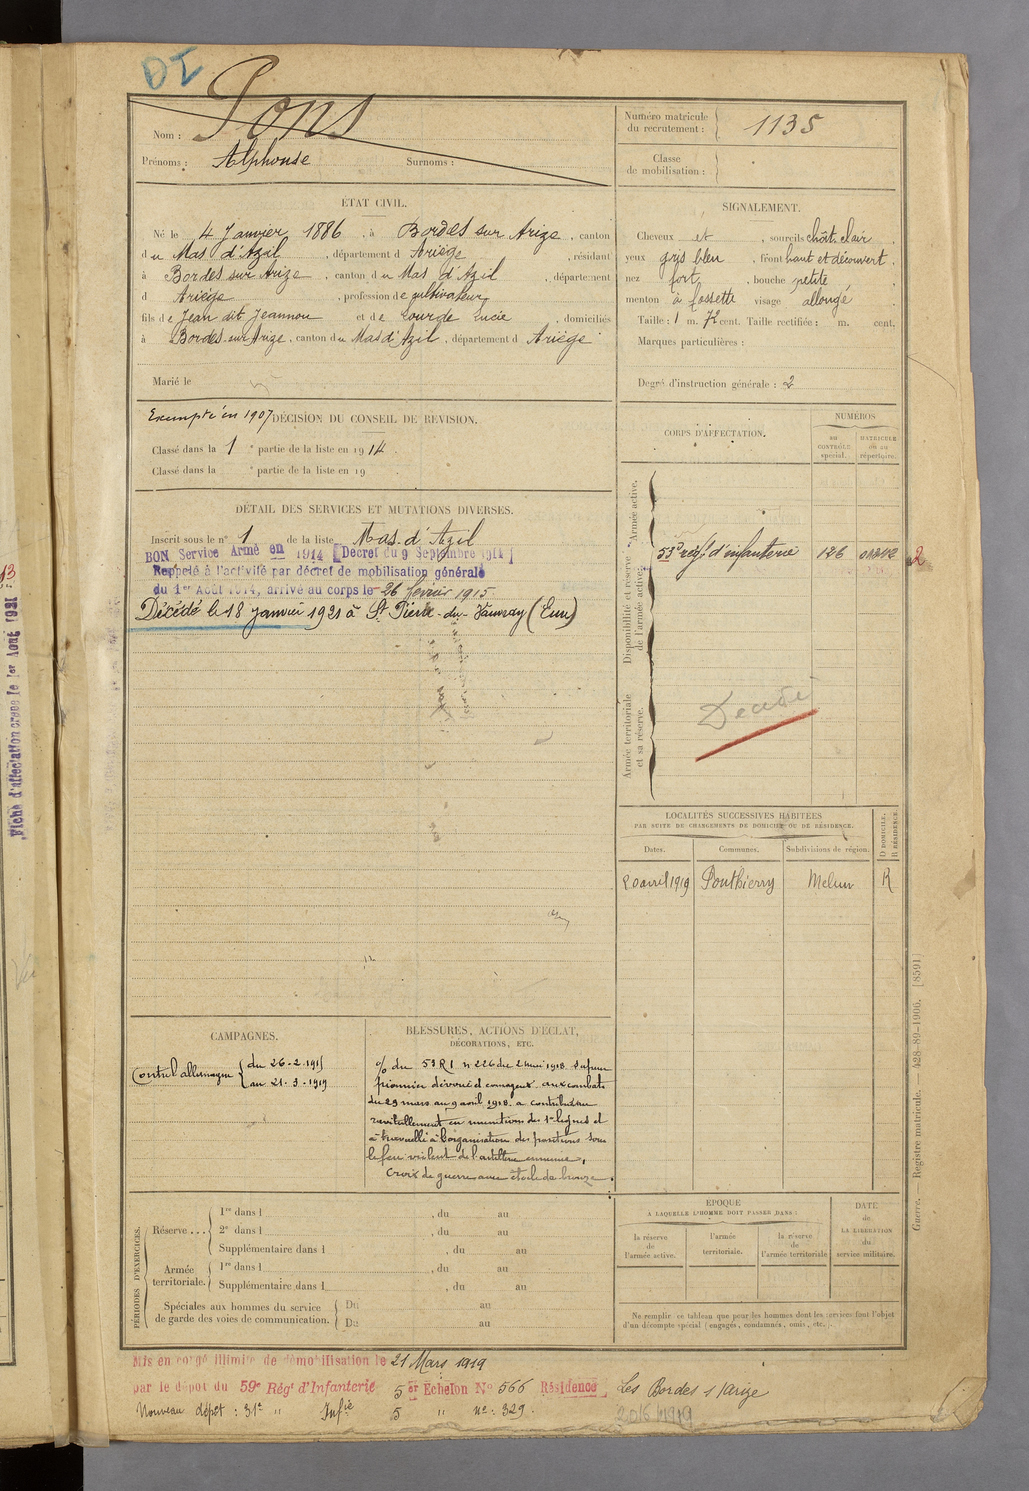 DI
Nom : Pons
Prénoms : Alphonse Surnoms :
Numéro matricule
du recrutement : 1135
Classe
de mobilisation :
ÉTAT CIVIL.
Né le 4 Janvier 1886, à Bordes sur Arize, canton
du Mas d'Azil, département d Ariège, résidant
à Bordes sur Arize, canton du Mas d'Azil, département
d Ariège, profession de cultivateur
fils de Jean dit Jeannou et de Lourde Lucie, domiciliés
à Bordes-sur-Arize, canton du Mas d'Azil, département d Ariège
Marié le
SIGNALEMENT.
Cheveux et, sourcils chât. clair,
yeux gris bleu, front haut et découvert,
nez fort, bouche petite,
menton à fossette visage allongé.
Taille : 1 m. 72 cent. Taille rectifiée : m. cent.
Marques particulières :
Degré d'instruction générale : 2
Exempté en 1907 DÉCISION DU CONSEIL DE REVISION.
Classé dans la 1e partie de la liste en 1914.
Classé dans la e partie de la liste en 19
CORPS D'AFFECTATION.
NUMÉROS
AU
CONTRÔLE
spécial.
MATRICULE
OU AU
répertoire.
DÉTAIL DES SERVICES ET MUTATIONS DIVERSES.
Inscrit sous le n° 1 de la liste Mas-d'Azil
BON Service Armé en 1914 [Décret du 9 Septembre 1914]
Rappelé à l'activité par décret de mobilisation générale
du 1er Août 1914, arrivé au corps le 26 février 1915
Décédé le 18 janvier 1921 à St Pierre-du-Vauvray (Eure)
Disponibilité et réserve Armée active.
de l'armée active.
53e régt d'infanterie 126
2
Armée territoriale
et sa réserve.
Décédé
LOCALITÉS SUCCESSIVES HABITÉES
PAR SUITE DE CHANGEMENTS DE DOMICILE OU DE RÉSIDENCE.
Dates. Communes. Subdivisions de région. D DOMICILE.
R RÉSIDENCE.
20 avril 1919 Ponthierry Melun R
CAMPAGNES.
Contre l'allemagne { du 26-2-1915
au 21-3-1919
BLESSURES, ACTIONS D'ÉCLAT,
DÉCORATIONS, ETC.
% du 59 R I n° 226 du 2 mai 1918
pionnier dévoué et courageux. aux combats
du 29 mars au 9 avril 1918. a contribué au
ravitaillement en munitions des 1es lignes et
a travaillé à l'organisation des positions sous
le feu violent de l'artillerie ennemie.
Croix de guerre avec étoile de bronze.
PÉRIODES D'EXERCICES.
Réserve ... 1re dans l , du au
2e dans l , du au
Supplémentaire dans l , du au
Armée
territoriale. 1re dans l , du au
Supplémentaire dans l , du au
Spéciales aux hommes du service
de garde des voies de communication. Du au
Du au
ÉPOQUE
À LAQUELLE L'HOMME DOIT PASSER DANS :
la réserve
de
l'armée active.
l'armée
territoriale.
la réserve
de
l'armée territoriale
DATE
de
LA LIBÉRATION
du
service militaire.
Ne remplir ce tableau que pour les hommes dont les services font l'objet
d'un décompte spécial (engagés, condamnés, omis, etc.).
Guerre. — Registre matricule. — 428-89-1906. [8591]
Mis en congé illimité de démobilisation le 21 Mars 1919
par le dépôt du 59e Régt d'Infanterie 5er Echelon N° 566 Résidence Les Bordes s/Arize
Nouveau dépôt : 31e " Infie 5 " n° : 329.
Fiche d'affectation créée le 1er Août 1921
13